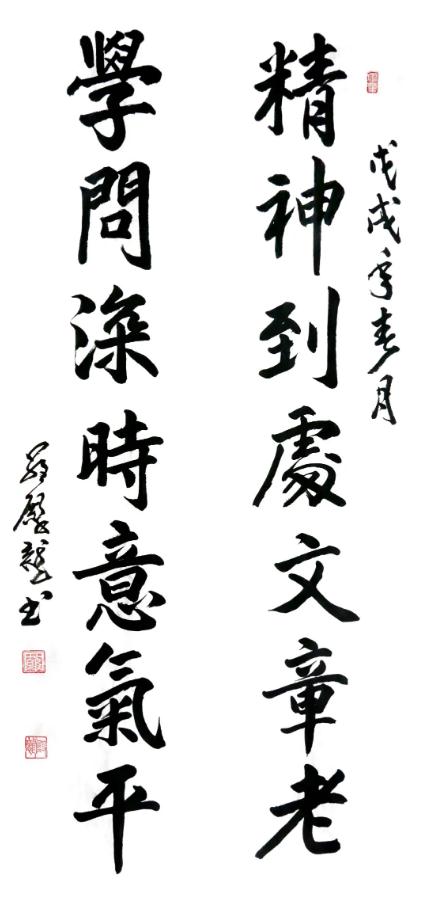 戊戌年春月
精神到處文章老
學問深時意氣平